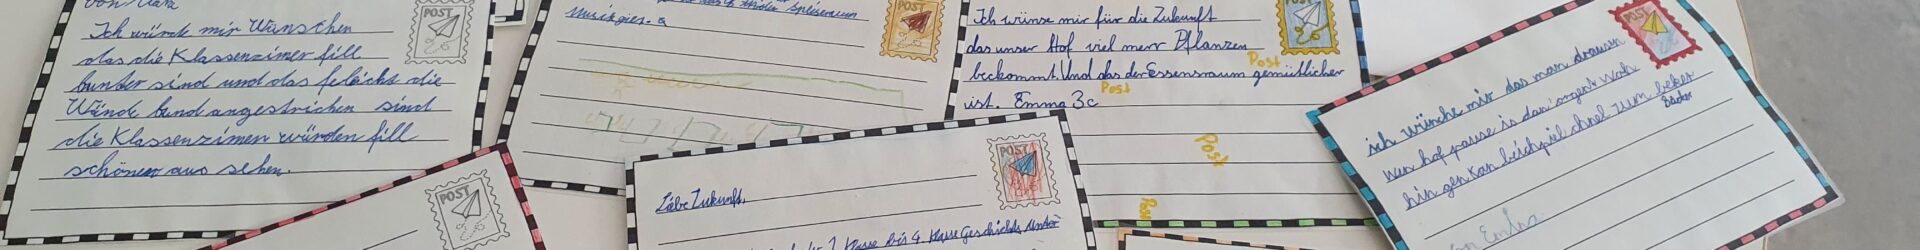 von Mara
Ich würde mir Wünschen
das die Klassenzimer fill
bunter sind und das feleicht die
Wände bund angestrichen sind
die Klassenzimer würden fill
schöner aus sehen.
POST
POST
Musik
POST
Ich wünse mir für die Zukunft
das unser Hof viel merr Pflanzen
beckommt. Und das der Essensraum gemütlicher
ist. Emma 3c
Post
Post
Post
Post
POST
POST
Liebe Zukunft,
1. Klasse bis 4. Klasse Geschichts Unter
POST
POST
ich wünche mir das man drausen
wen hof pause is dan
hin gen kan beischpiel schnel zum beker
Bäcker
von